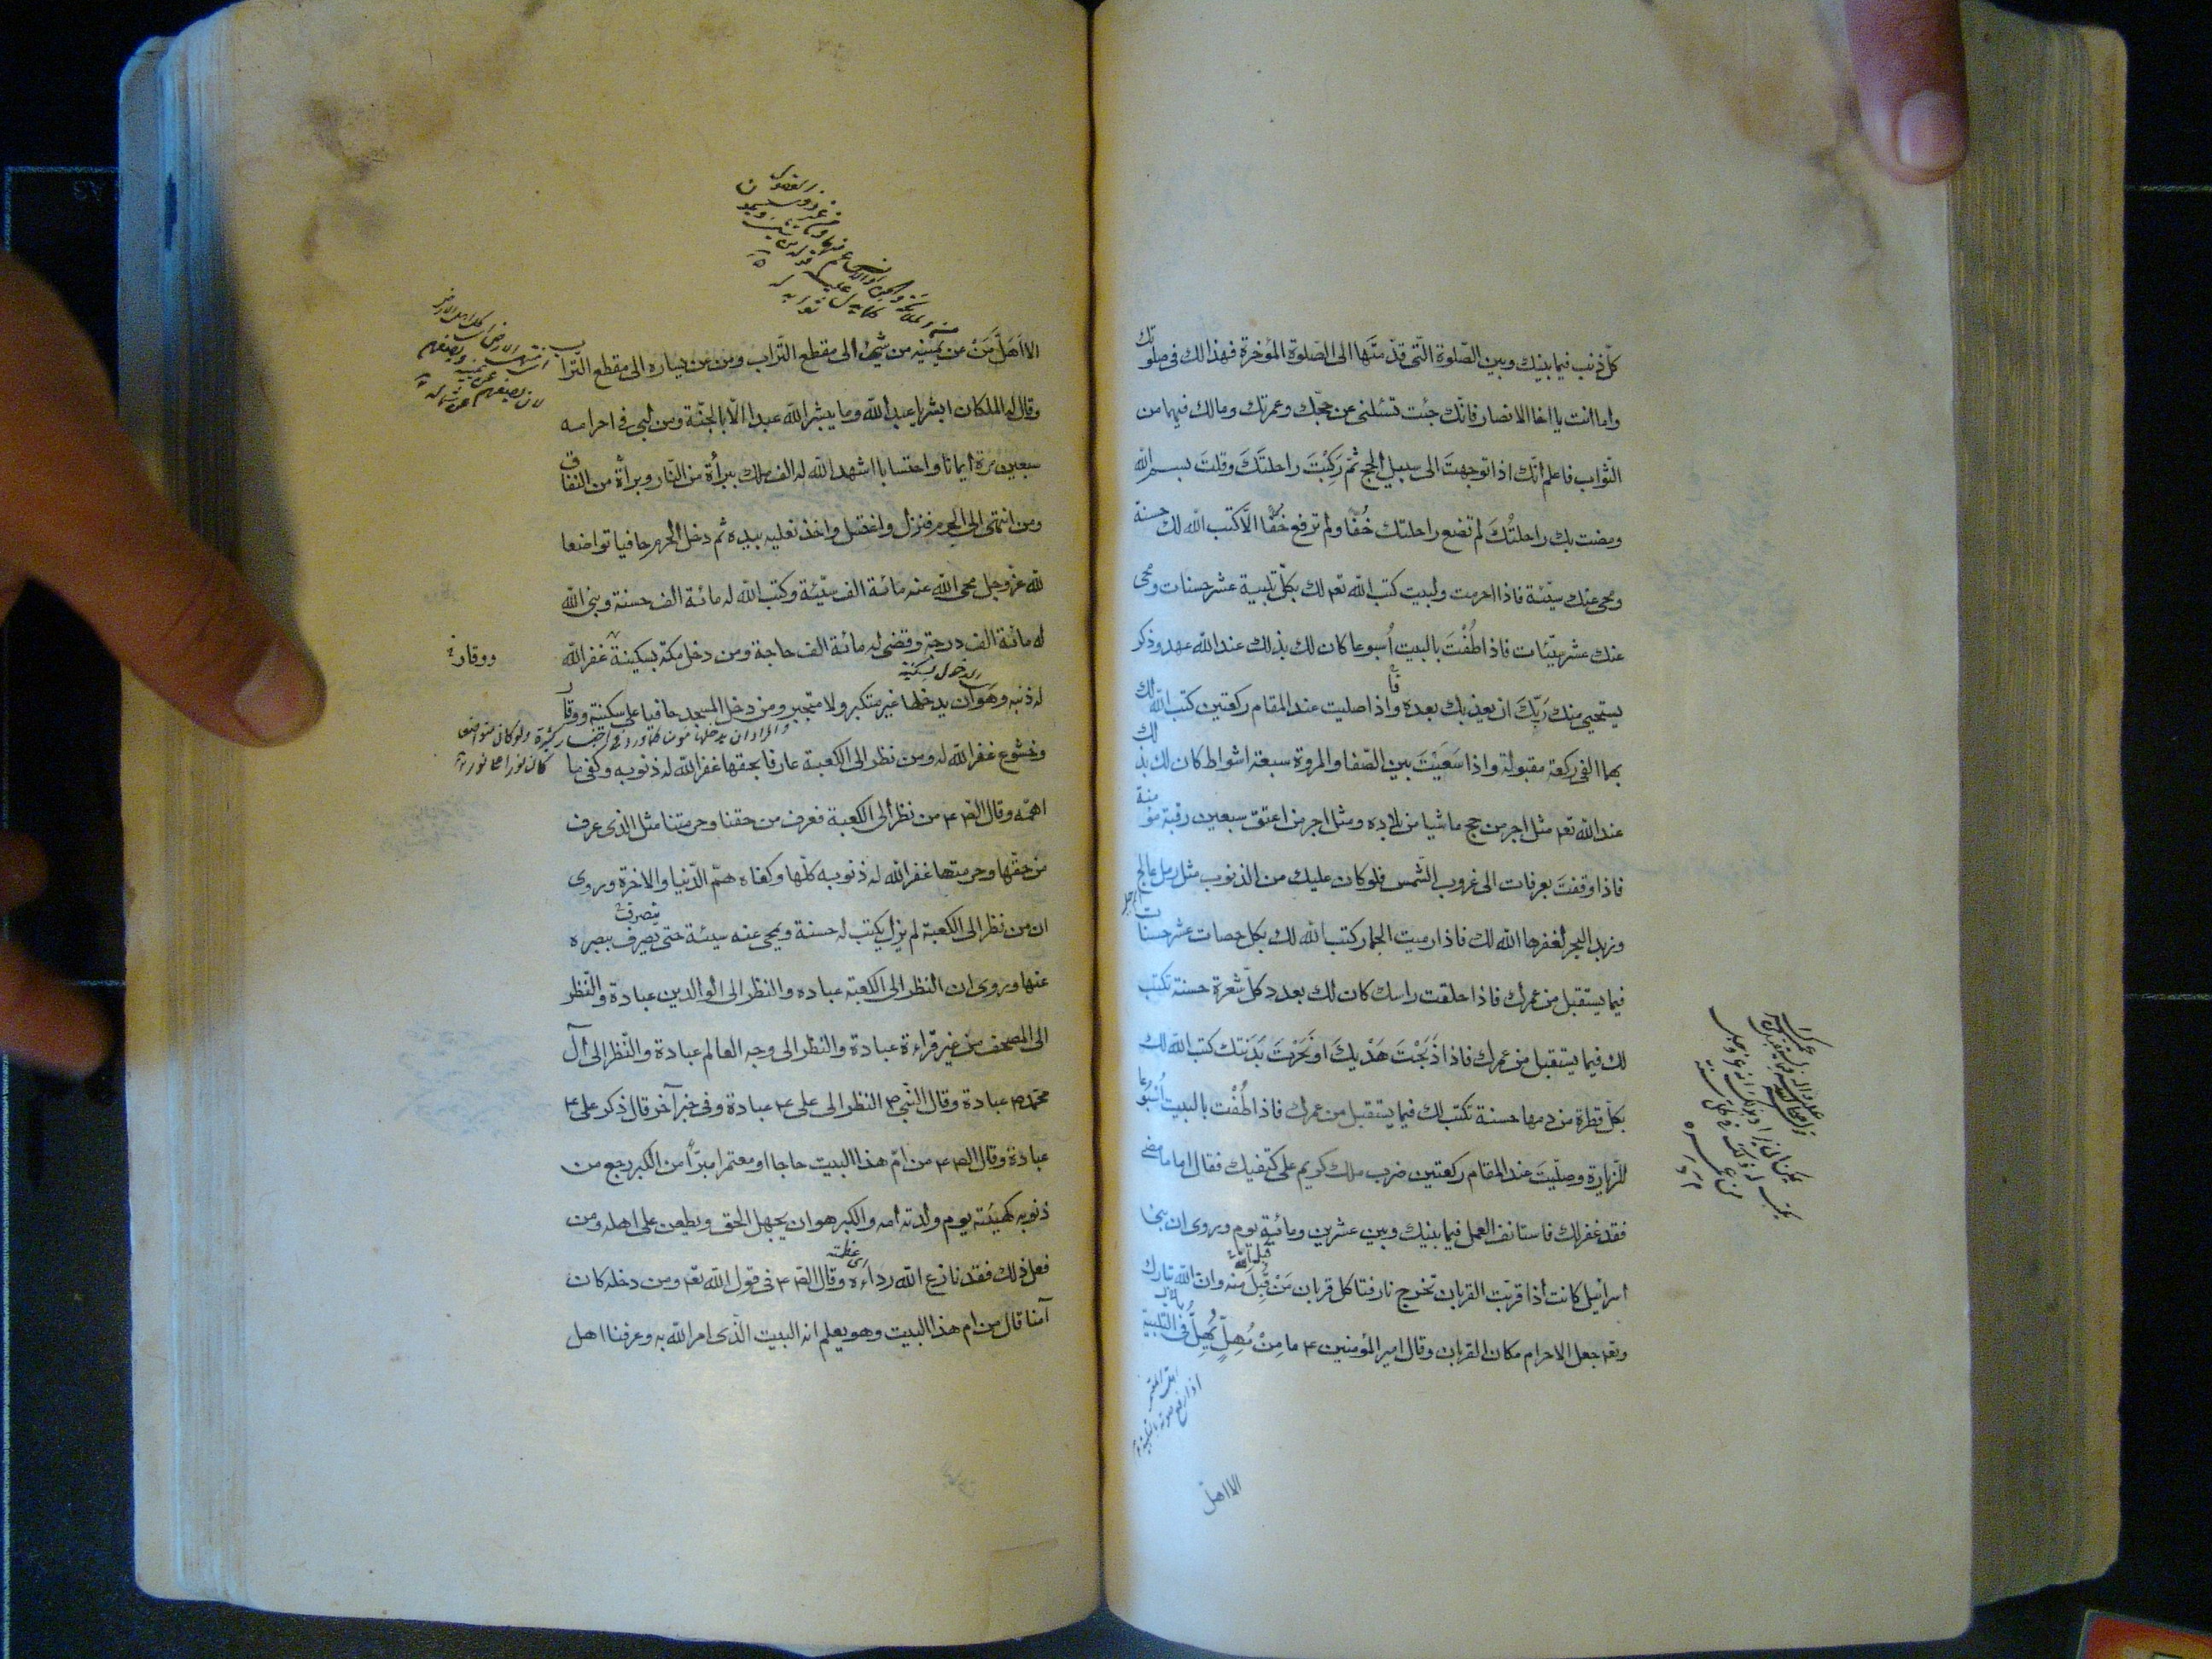 كلّ ذنب فيما بينك وبين الصّلوة الّتى قدّمتَها الى الصّلوة المؤخرة فهذا لك فى صلوتك
واما انت يا اخا الانصار فانّك جئت تسئلنى عن حجّك وعمرتك ومالك فيهما من
الثّواب فاعلم انّك اذا توجهتَ الى سبيل الحج ثمّ رَكِبْتَ راحلتَكَ وقلتَ بسم الله
ومضت بك راحلتُكَ لم تضع راحلتك خُفّا ولم ترفع خُفّا الّا كتب الله لك حسنة
ومحى عنك سيّئة فاذا احرمت ولبيت كتب الله تعم لك بكلّ تلبية عشر حسنات ومحى
عنك عشر سيّئات فاذا طُفْتَ بالبيت اُسبوعا كان لك بذلك عند الله عهد وذكر
يستحيى منك رَبّكَ ان يعذبك بعده واذا صليت عند المقام ركعتين كتب الله لك
بهما الفى ركعة مقبولة واذا سَعَيْتَ بين الصّفا والمروة سبعة اشواط كان لك بذلك
عند الله تعم مثل اجر من حج ماشيا من بلاده ومثل اجر من اعتق سبعين رقبة مؤمنة
فاذا وقفتَ بعرفات الى غروب الشّمس فلو كان عليك من الذنوب مثل رمل عالج
وزبد البحر لغفرها الله لك فاذا رميت الجمار كتب الله لك بكل حصات عشر حسنات
فيما يستقبل من عمرك فاذا حلقت راسك كان لك بعدد كلّ شعرة حسنة تكتب
لك فيما يستقبل من عمرك فاذا ذَبَحْتَ هَدْيكَ او نَحَرْتَ بَدَنتك كتب الله لك
بكلّ قطرة من دمها حسنة تكتب لك فيما يستقبل من عمرك فاذا طُفْت بالبيت اُسبُوعا
للّزيارة وصلّيتَ عند المقام ركعتين ضرب ملك كريم على كتفيك فقال اما ما مضى
فقد غفر لك فاستانف العمل فيما بينك وبين عشرين ومائة يوم وروى ان بنى
اسرائيل كانت اذا قربّت القربان تخرج نار فتاكل قربان مَنْ قُبِلَ منه وان الله تبارك
وتعم جعل الاحرام مكان القربان وقال امير المؤمنين ع ما مِنْ مُهِلٍّ يُهِلُّ فى التّلبية
اذا رفع صوته بالتلبية
الا اهلّ
الا اَهَلَّ مَنْ عن يمينه من شئ الى مقطع التّراب ومن عن يساره الى مقطع التّراب
وقال له الملكان ابشر يا عبد الله وما يبشر الله عبدا الّا بالجنّة ومن لبى فى احرامه
سبعين مرة ايمانا واحتسابا اشهد الله له الف ملك ببراْة من النّار وبراْة من النّفاق
ومن انتهى الى الحرم فنزل واغتسل واخذ نعليه بيده ثم دخل الحرم حافيا تواضعا
لله عزّ وجل محى الله عنه مائة الف سيّئة وكتب الله له مائة الف حسنة وبنى الله
له مائة الف درجة وقضى له مائة الف حاجة ومن دخل مكة بسكينة غفر الله
ووقار
له ذنبه وهو ان يدخلها غير متكبر ولا متجبر ومن دخل المسجد حافيا على سكينة ووقار
وخشوع غفر الله له ومن نظر الى الكعبة عارفا بحقها غفر الله له ذنوبه وكفى ما
اهمّه وقال الصّ ع من نظر الى الكعبة فعرف من حقنا وحرمتنا مثل الذى عرف
من حقّها وحرمتها غفر الله له ذنوبه كلّها وكفاه همّ الدّنيا والاخرة وروى
ان من نظر الى الكعبة لم يزل يكتب له حسنة ويمحى عنه سيئة حتى يصرف ببصره
عنها وروى ان النظر الى الكعبة عباده والنظر الى الوالدين عبادة والنّظر
الى المصحف من غير قراءة عبادة والنظر الى وجه العالم عبادة والنّظر الى آل
محمّد ص عبادة وقال النّبى ص النظر الى على ع عبادة وفى خبر آخر قال ذكر على ع
عبادة وقال الص ع من امّ هذا البيت حاجا او معتمرا مبرّاً من الكبر رجع من
ذنوبه كهيئته يوم ولدته امه والكبر هو ان يجهل الحق ويطعن على اهله ومن
فعل ذلك فقد نازع الله رداءه وقال الصّ ع فى قول الله تعم ومن دخله كان
آمنا قال من ام هذا البيت وهو يعلم انه البيت الّذى امر الله به وعرفنا اهل